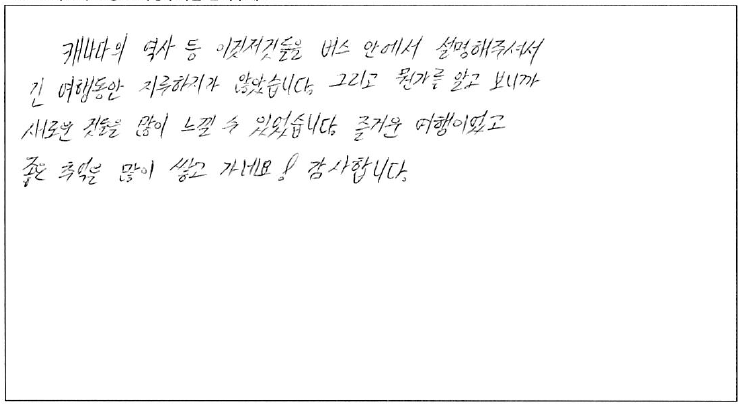 캐나다의 역사 등 이것저것들을 버스 안에서 설명해주셔서
긴 여행동안 지루하지가 않았습니다. 그리고 뭔가를 알고 보니까
새로운 것들을 많이 느낄 수 있었습니다. 즐거운 여행이었고
좋은 추억을 많이 쌓고 가네요! 감사합니다.